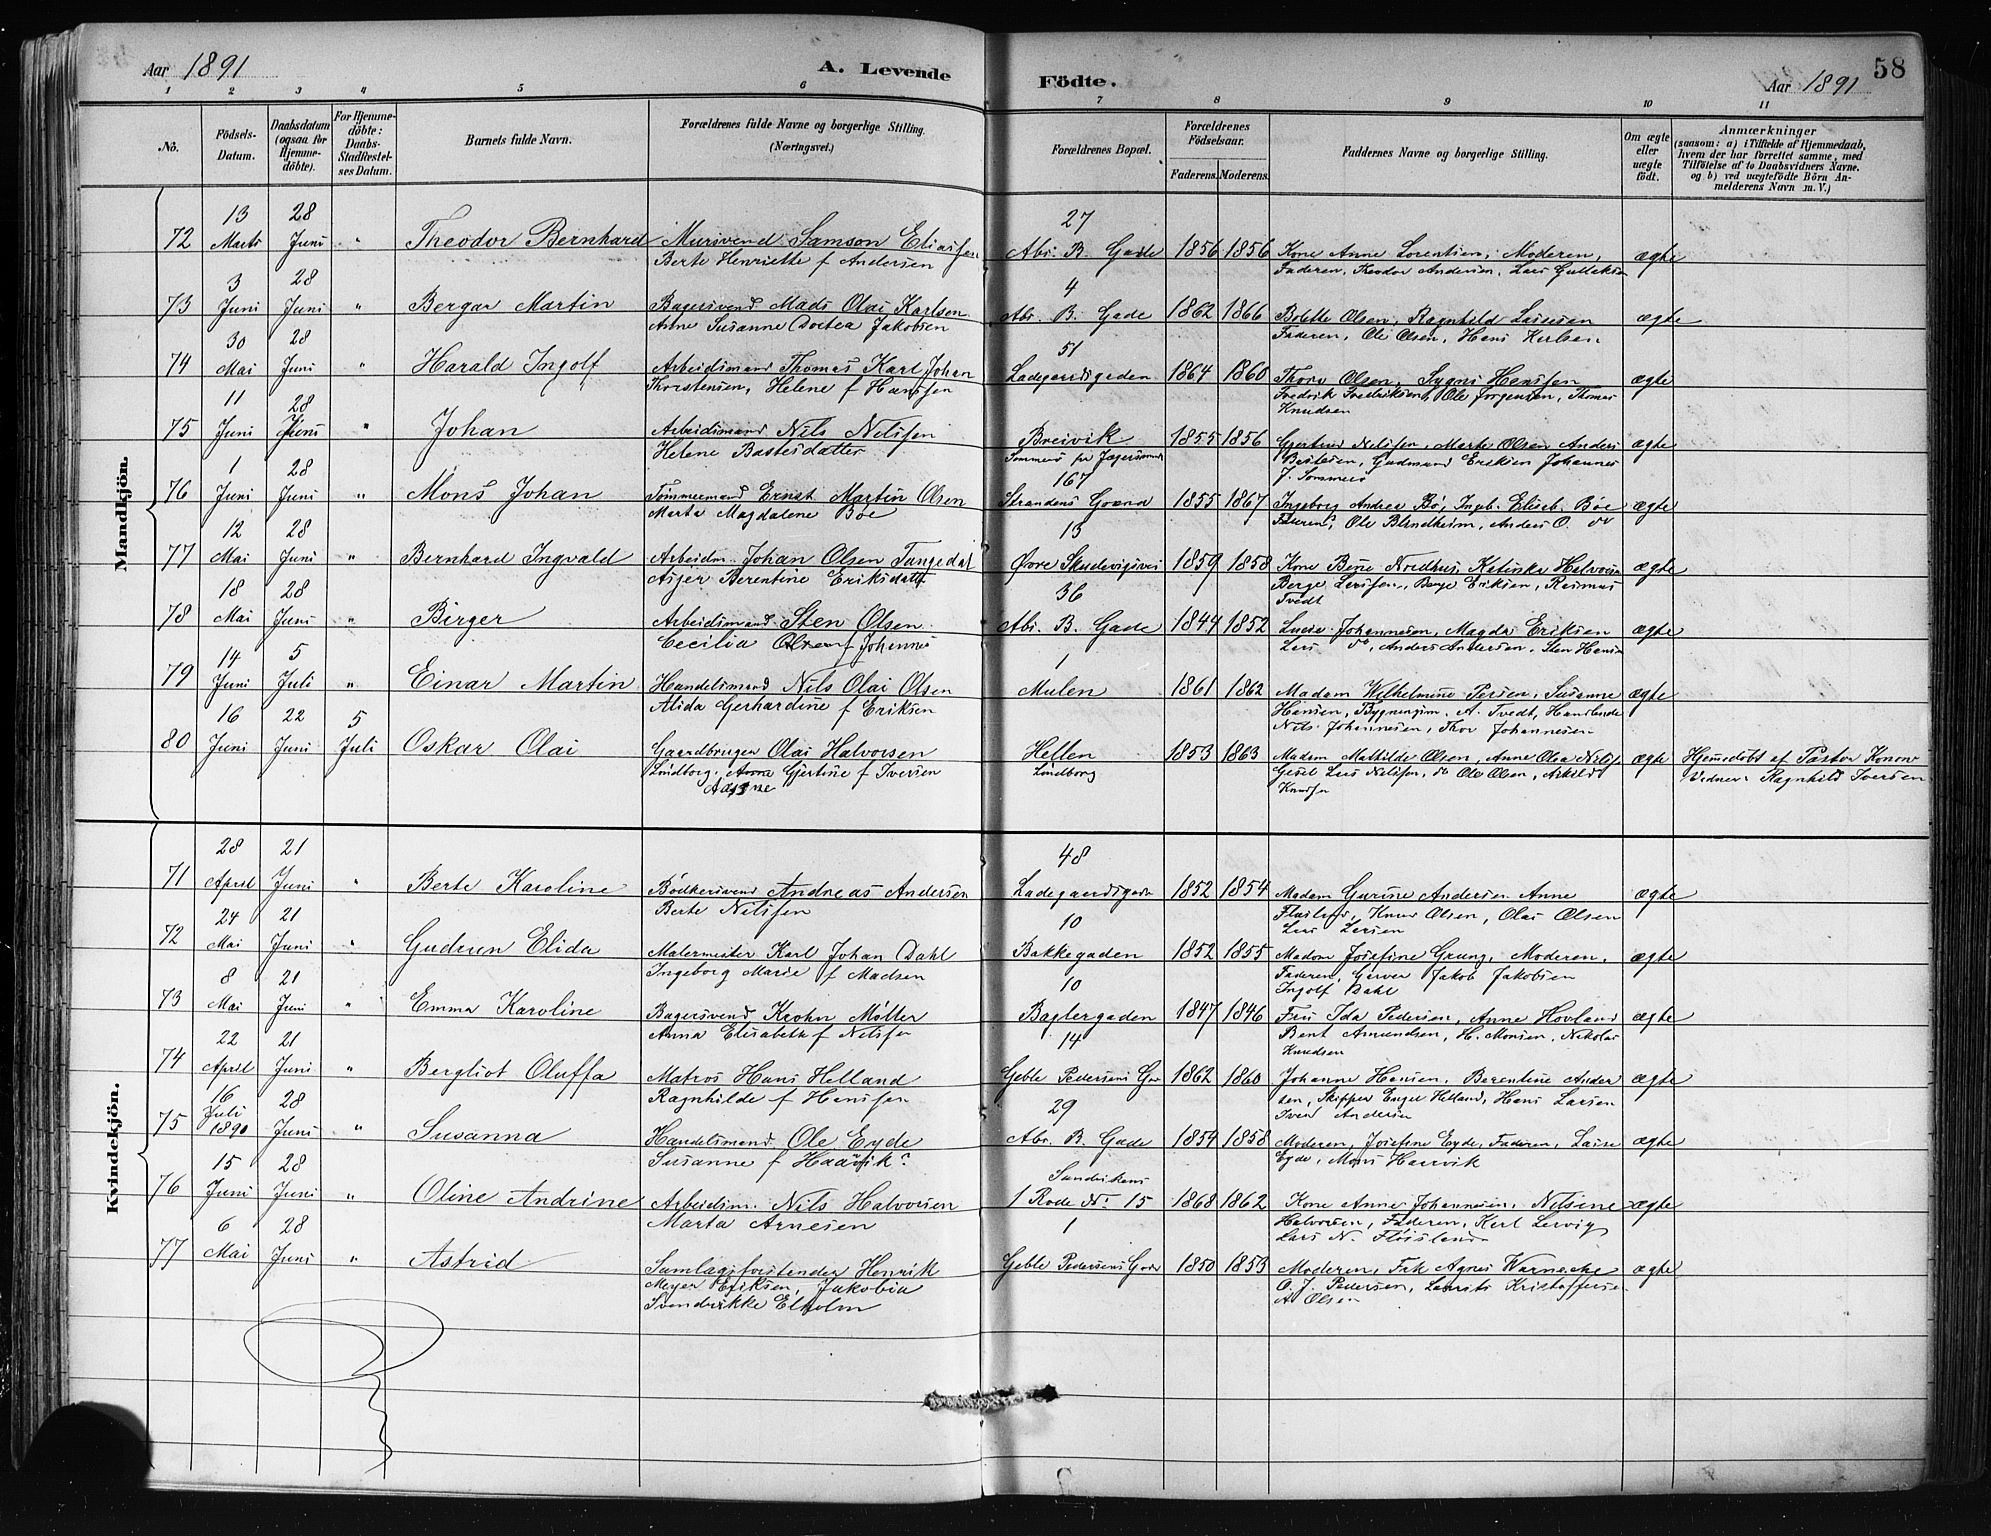 Aar 1891 A. Levende Födte. Aar 1891 58
1 2 3 4 5 6 7 8 9 10 11
No. Födsels-Datum. Daabsdatum (ogsaa for Hjemme-döbte). For Hjemme-döbte: Daabs-Stadfæstel-ses Datum. Barnets fulde Navn. Forældrenes fulde Navne og borgerlige Stilling. (Næringsvei.) Forældrenes Bopæl. Forældrenes Födselsaar. Faderens. Moderens. Faddernes Navne og borgerlige Stilling. Om ægte eller uægte födt. Anmærkninger (saasom: a) i Tilfælde af Hjemmedaab, hvem der har forrettet samme, med Tilföielse af to Daabsvidners Navne. og b) ved uægtefödte Börn An-melderens Navn m. V.)
Mandkjön.
13 28 27
72 Marts Juni " Theodor Bernhard Mursvend Samson Eliassen Abs. B. Gade 1856 1856 Kone Anne Lorentsen, Moderen, ægte
Berte Henriette f Andersen Faderen, Theodor Andersen, Lars Gulleksen
3 28 4
73 Juni Juni " Bergar Martin Bagersvend Mads Olai Karlsen Abs. B. Gade 1862 1866 Bolette Olsen, Ragnhild Lassesen ægte
Anne Susanne Dortea Jakobsen Faderen, Ole Olsen, Hans Karlsen
30 28 51
74 Mai Juni " Harald Ingolf Arbeidsmand Thomas Karl Johan Ladegaardsgaden 1864 1860 Thora Olsen, Sygni Henssen ægte
Thorstensen, Helene f Hanssen Fredrik Fredriksen, Ole Jørgensen, Thomas
Knudsen
11 28
75 Juni Juni " Johan Arbeidsmand Nils Nilssen Breivik 1855 1856 Gjertrud Nilssen, Marte Olsen Anders ægte
Helene Bastesdatter Sommerø pr Jægersund Bastesen, Gudmund Eriksen Johannes
J. Sommerø
1 28 167
76 Juni Juni " Mons Johan Tømmermand Ernst Martin Olsen Strandens Grænd 1855 1867 Ingeborg Andrea Bø, Ingb. Eliseb. Bøe ægte
Marta Magdalene Bøe Faderen, Ole Blindheim, Anders O. do
12 28 13
77 Mai Juni " Bernhard Ingvald Arbeidm. Johan Olsen Tungedal Øvre Skudevigsvei 1859 1858 Kone Bene Nordhus, Katinka Halvorsen ægte
Asjer Berentine Eriksdatt Berge Larssen, Berge Eriksen, Rasmus
Tvedt
18 28 36
78 Mai Juni " Birger Arbeidsmand Sten Olsen Abs. B. Gade 1844 1852 Lucie Johannesen, Magda Eriksen ægte
Cecilia Olsen f Johannes Lars do, Anders Andersen, Sten Hansen
14 5 1
79 Juni Juli " Einar Martin Handelsmand Nils Olai Olsen Mulen 1861 1862 Madam Wilhelmine Persen, Susanne ægte
Alida Gerhardine f Eriksen Hansen, Bygningsm. A. Tvedt, Handlende
Nils Johannesen, Thor Johannesen
16 22 5
80 Juni Juni Juli Oskar Olai Gaardbruger Olai Halvorsen Hellen 1853 1863 Madam Mathilde Olsen, Anne Olea Nilss ægte Hjemedøbt af Pastor Konow
Lindborg, Anna Gjertine f Iversen Lindborg Gesel Lars Nilssen, do Ole Olsen, Askild Vidner: Ragnhild Iversen
Knudsen
Kvindekjön.
28 21 48
71 April Juni " Berte Karoline Bødkersvend Andreas Andersen Ladegaardsgaden 1852 1854 Madam Gurine Andersen Anne ægte
Berte Nilssen Knud Olsen, Olai Olsen
Lars Larsen
24 21 10
72 Mai Juni " Gudrun Elida Malermester Karl Johan Dahl Bakkegaden 1852 1855 Madam Josefine Grung, Moderen, ægte
Ingeborg Marie f Madsen Faderen, Garver Jakob Jakobsen
Ingolf Dahl
8 21 10
73 Mai Juni " Emma Karoline Bagersvend Krohn Møller Baglergaden 1847 1846 Fru Ida Pedersen, Anne Hovland ægte
Anna Elisabeth f Nilssen Bent Amundsen, H. Monsen, Nikolai
Knudsen
22 21 14
74 April Juni " Bergliot Oluffa Matros Hans Helland Geble Pedersens Ga 1862 1860 Johanne Hansen, Berentine Ander ægte
Ragnhilde f Hanssen sen, Skipper Engel Helland, Hans Larsen
Iver Andersen
16 28 29
75 Juli 1890 Juni " Susanna Handelsmand Ole Eyde Abs. B. Gade 1854 1858 Moderen, Josefine Eyde, Faderen, Lasse ægte
Susanne f Haavik Eyde, Mons Haavik
15 28 Sandvikens
76 Juni Juni " Oline Andrine Arbeidsm. Nils Halvorsen 1 Rode No 15 1868 1862 Kone Anne Johannesen, Nilsine ægte
Marta Arnesen Halvorsen, Faderen, Karl Lervig
Lars N. Fløisland
6 28 1
77 Mai Juni " Astrid Samlagsforstander Henrik Geble Pedersens Gade 1850 1853 Moderen, Frk Agnes Warnecke ægte
Meyer Eriksen, Jakobia O. J. Pedersen, Laurits Kristoffersen
Svendrikke Elholm A Olsen